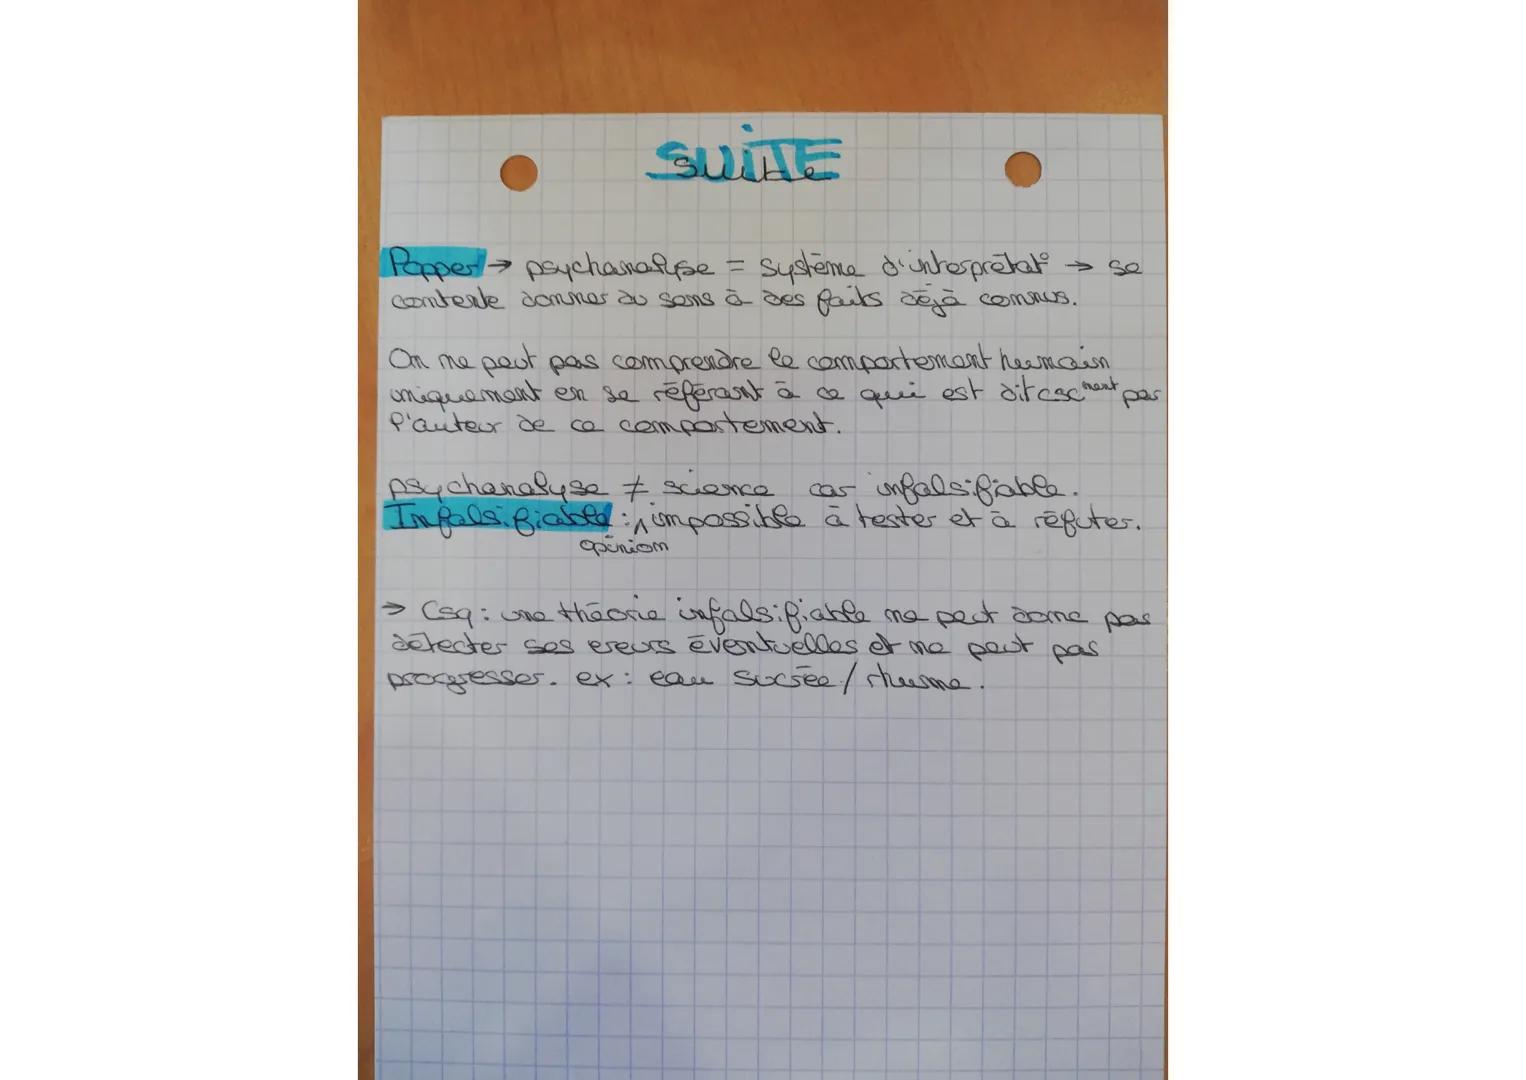 SUiTE
Popper → psychanalyse = système d'interprétat° → se
contente donner du sens à des faits déjà connus.
On ne peut pas comprendre le comportement humain
uniquement en se référant à ce qui est dit csc ment par
l'auteur de ce comportement.
psychanalyse ≠ science car infalsifiable.
Infalsifiable : ∧ impossible à tester et à réfuter.
opinion
→ Csq : une théorie infalsifiable ne peut donc pas
détecter ses ereurs éventuelles et ne peut pas
progresser. ex : eau sucrée / rhume.